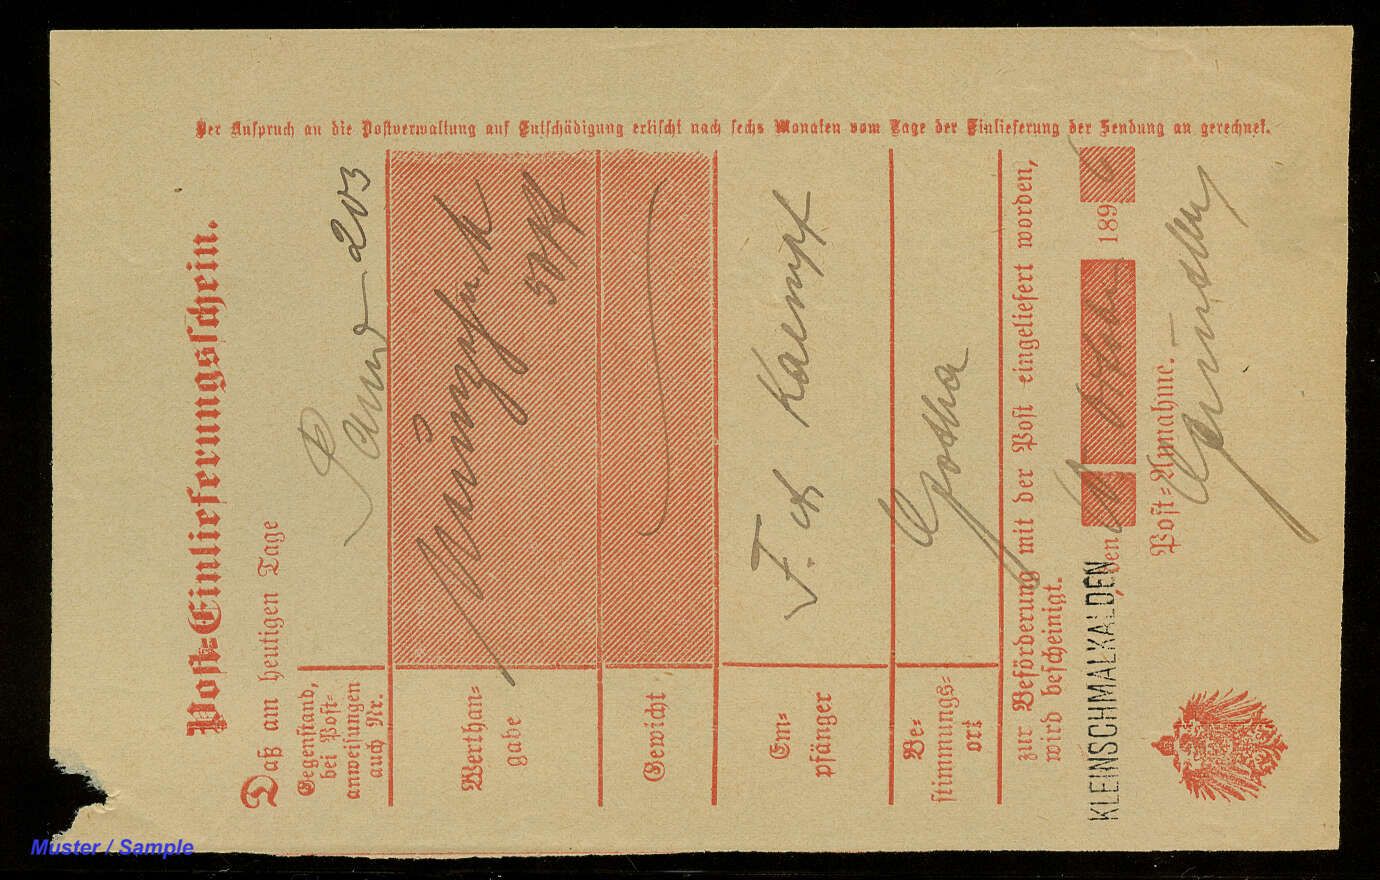 Post=Einlieferungsschein.
Daß am heutigen Tage
Gegenstand,
bei Post=
anweisungen
auch Nr.
203
Werthan=
gabe
50 Pf
Gewicht
Em=
pfänger
F. Kaempf
Be=
stimmungs=
ort
Gotha
zur Beförderung mit der Post eingeliefert worden,
wird bescheinigt.
KLEINSCHMALKALDEN, den 1896
Post=Annahme.
Der Anspruch an die Postverwaltung auf Entschädigung erlischt nach sechs Monaten vom Tage der Einlieferung der Sendung an gerechnet.
Muster / Sample